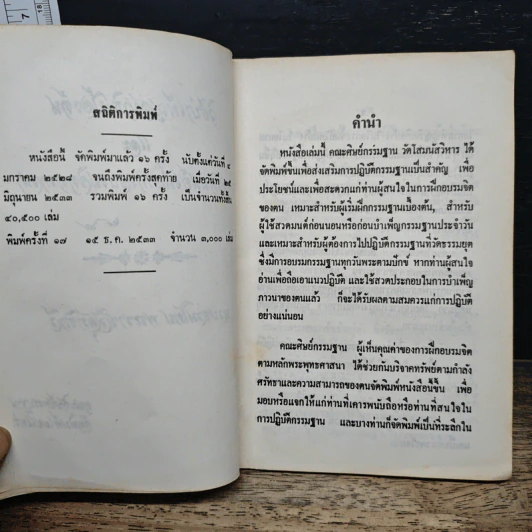 สถิติการพิมพ์
หนังสือนี้ จัดพิมพ์มาแล้ว ๑๖ ครั้ง นับตั้งแต่วันที่ ๔
มกราคม ๒๕๒๘ จนถึงพิมพ์ครั้งสุดท้าย เมื่อวันที่ ๒๕
มิถุนายน ๒๕๓๓ รวมพิมพ์ ๑๖ ครั้ง เป็นจำนวนทั้งสิ้น
๔๐,๕๐๐ เล่ม
พิมพ์ครั้งที่ ๑๗ ๑๕ ธ.ค. ๒๕๓๓ จำนวน ๓,๐๐๐ เล่ม
คำนำ
หนังสือเล่มนี้ คณะศิษย์กรรมฐาน วัดโสมนัสวิหาร ได้
จัดพิมพ์ขึ้นเพื่อส่งเสริมการปฏิบัติกรรมฐานเป็นสำคัญ เพื่อ
ประโยชน์และเพื่อสะดวกแก่ท่านผู้สนใจในการฝึกอบรมจิต
ของตน เหมาะสำหรับผู้เริ่มฝึกกรรมฐานเบื้องต้น, สำหรับ
ผู้ใช้สวดมนต์ก่อนนอนหรือก่อนบำเพ็ญกรรมฐานประจำวัน
และเหมาะสำหรับผู้ต้องการไปปฏิบัติกรรมฐานที่วัดธรรมยุต
ซึ่งมีการอบรมกรรมฐานทุกวันพระตามปักข์ หากท่านผู้สนใจ
อ่านเพื่อถือเอาแนวปฏิบัติ และใช้สวดประกอบในการบำเพ็ญ
ภาวนาของตนแล้ว ก็จะได้รับผลตามสมควรแก่การปฏิบัติ
อย่างแน่นอน
คณะศิษย์กรรมฐาน ผู้เห็นคุณค่าของการฝึกอบรมจิต
ตามหลักพระพุทธศาสนา ได้ช่วยกันบริจาคทรัพย์ตามกำลัง
ศรัทธาและความสามารถของตนจัดพิมพ์หนังสือนี้ขึ้น เพื่อ
มอบหรือแจกให้แก่ท่านที่เคารพนับถือหรือท่านที่สนใจใน
การปฏิบัติกรรมฐาน และบางท่านก็จัดพิมพ์เป็นที่ระลึกใน